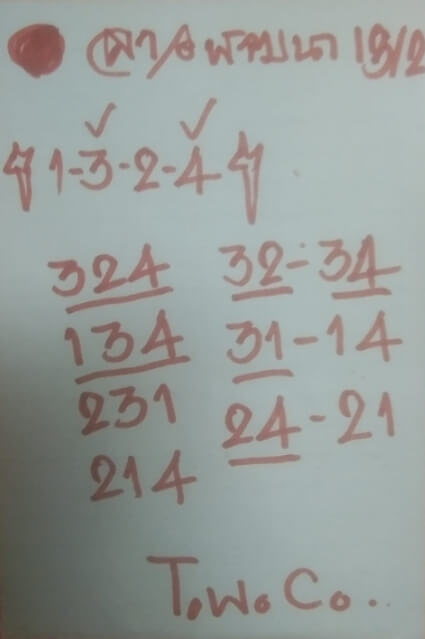 ลาวพัฒนา 13/2
1-3-2-4
324 32-34
134 31-14
231 24-21
214
T.W.Co..